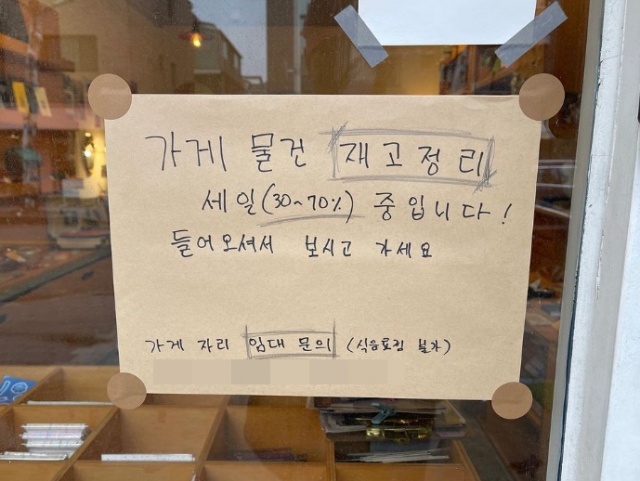 가게 물건 재고정리
세일(30~70%) 중입니다!
들어오셔서 보시고 가세요
가게 자리 임대 문의 (식음료점 불가)